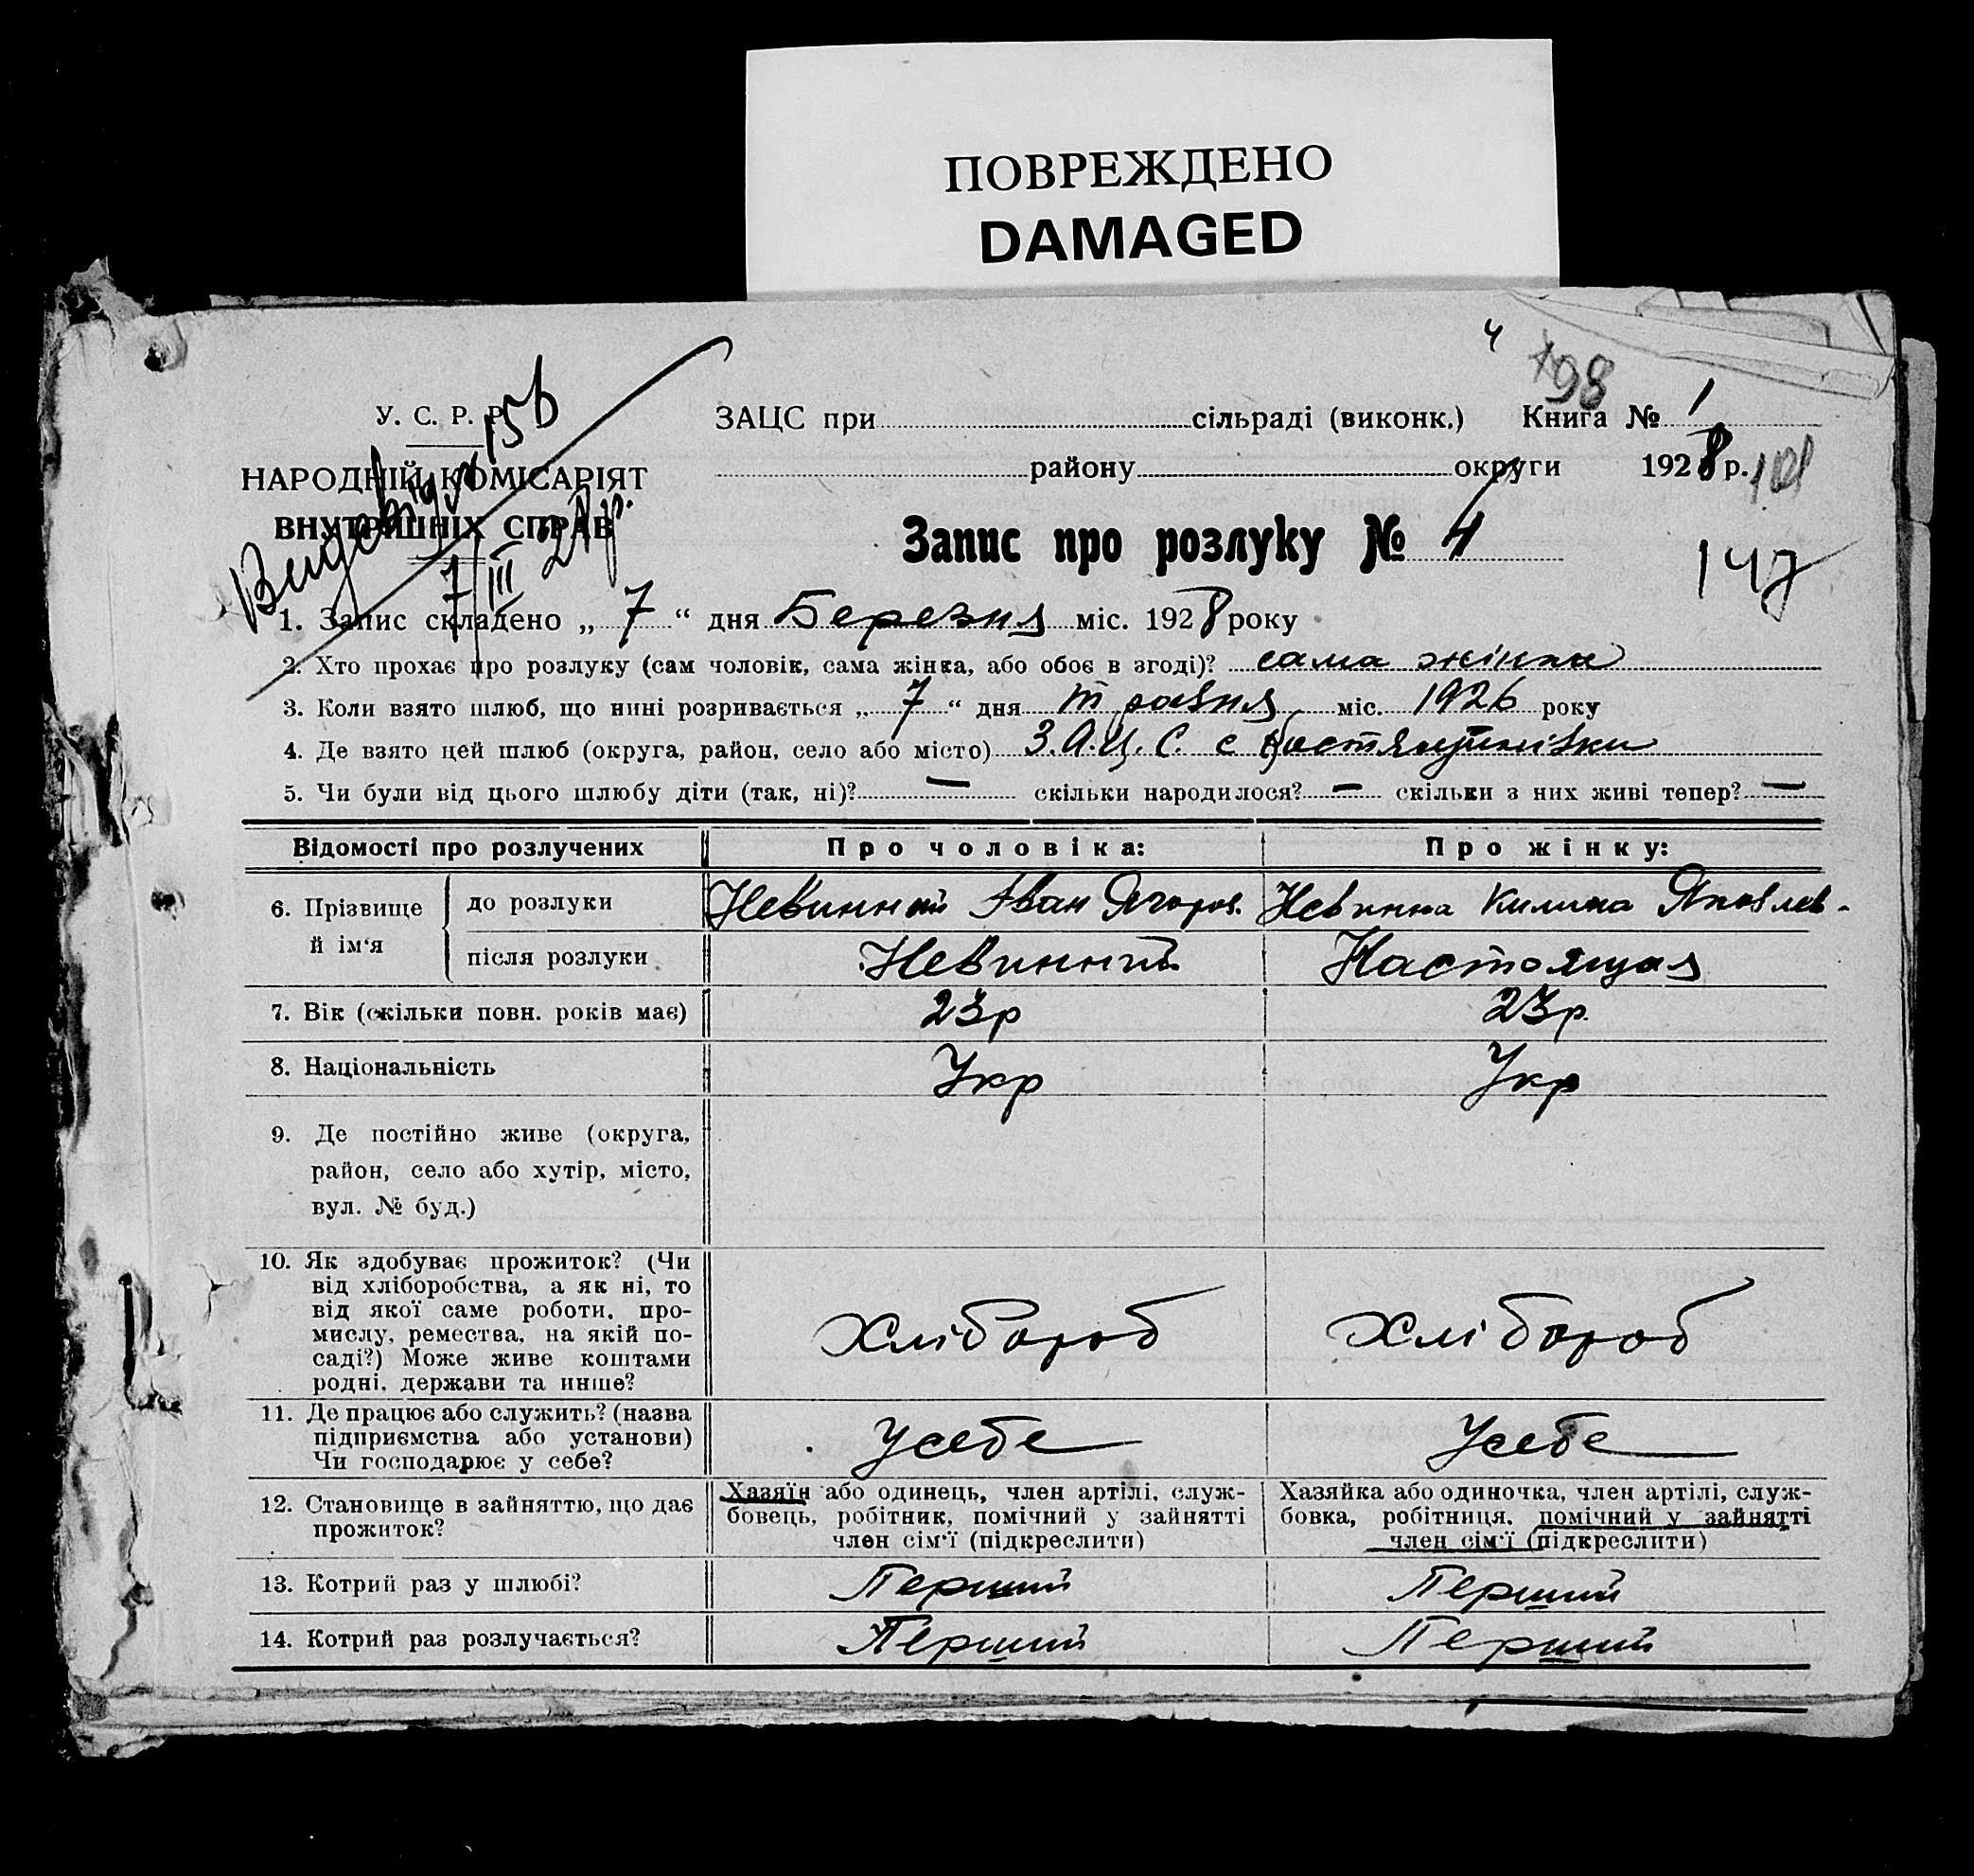 ПОВРЕЖДЕНО
DAMAGED
4
198
У. С. Р. Р.
156
ЗАЦС при сільраді (виконк.) Книга № 1
НАРОДНІЙ КОМІСАРІЯТ
району округи 1928 р.
101
ВНУТРІШНІХ СПРАВ
7/III 28р.
Запис про розлуку № 4
147
1. Запис складено „ 7 “ дня Березня міс. 1928 року
2. Хто прохає про розлуку (сам чоловік, сама жінка, або обоє в згоді)? сама жінка
3. Коли взято шлюб, що нині розривається „ 7 “ дня травня міс. 1926 року
4. Де взято цей шлюб (округа, район, село або місто) З.А.Ц.С. с Костянтинівки
5. Чи були від цього шлюбу діти (так, ні)? — скільки народилося? — скільки з них живі тепер? —
Відомості про розлучених Про чоловіка: Про жінку:
6. Прізвище й ім‘я до розлуки Невинний Іван Ягоров. Невинна Килина Яковлев-
після розлуки Невинний Настоящая
7. Вік (скільки повн. років має) 23р 23р.
8. Національність Укр Укр
9. Де постійно живе (округа,
район, село або хутір, місто,
вул. № буд.)
10. Як здобуває прожиток? (Чи
від хліборобства, а як ні, то
від якої саме роботи, про-
мислу, ремества, на якій по-
саді?) Може живе коштами
родні, держави та инше?
Хлібороб Хлібороб
11. Де працює або служить? (назва
підприємства або установи)
Чи господарює у себе?
Усебе Усебе
12. Становище в зайняттю, що дає
прожиток?
Хазяїн або одинець, член артілі, служ-
бовець, робітник, помічний у зайнятті
член сім‘ї (підкреслити)
Хазяйка або одиночка, член артілі, служ-
бовка, робітниця, помічний у зайнятті
член сім‘ї (підкреслити)
13. Котрий раз у шлюбі? Перший Перший
14. Котрий раз розлучається? Перший Перший